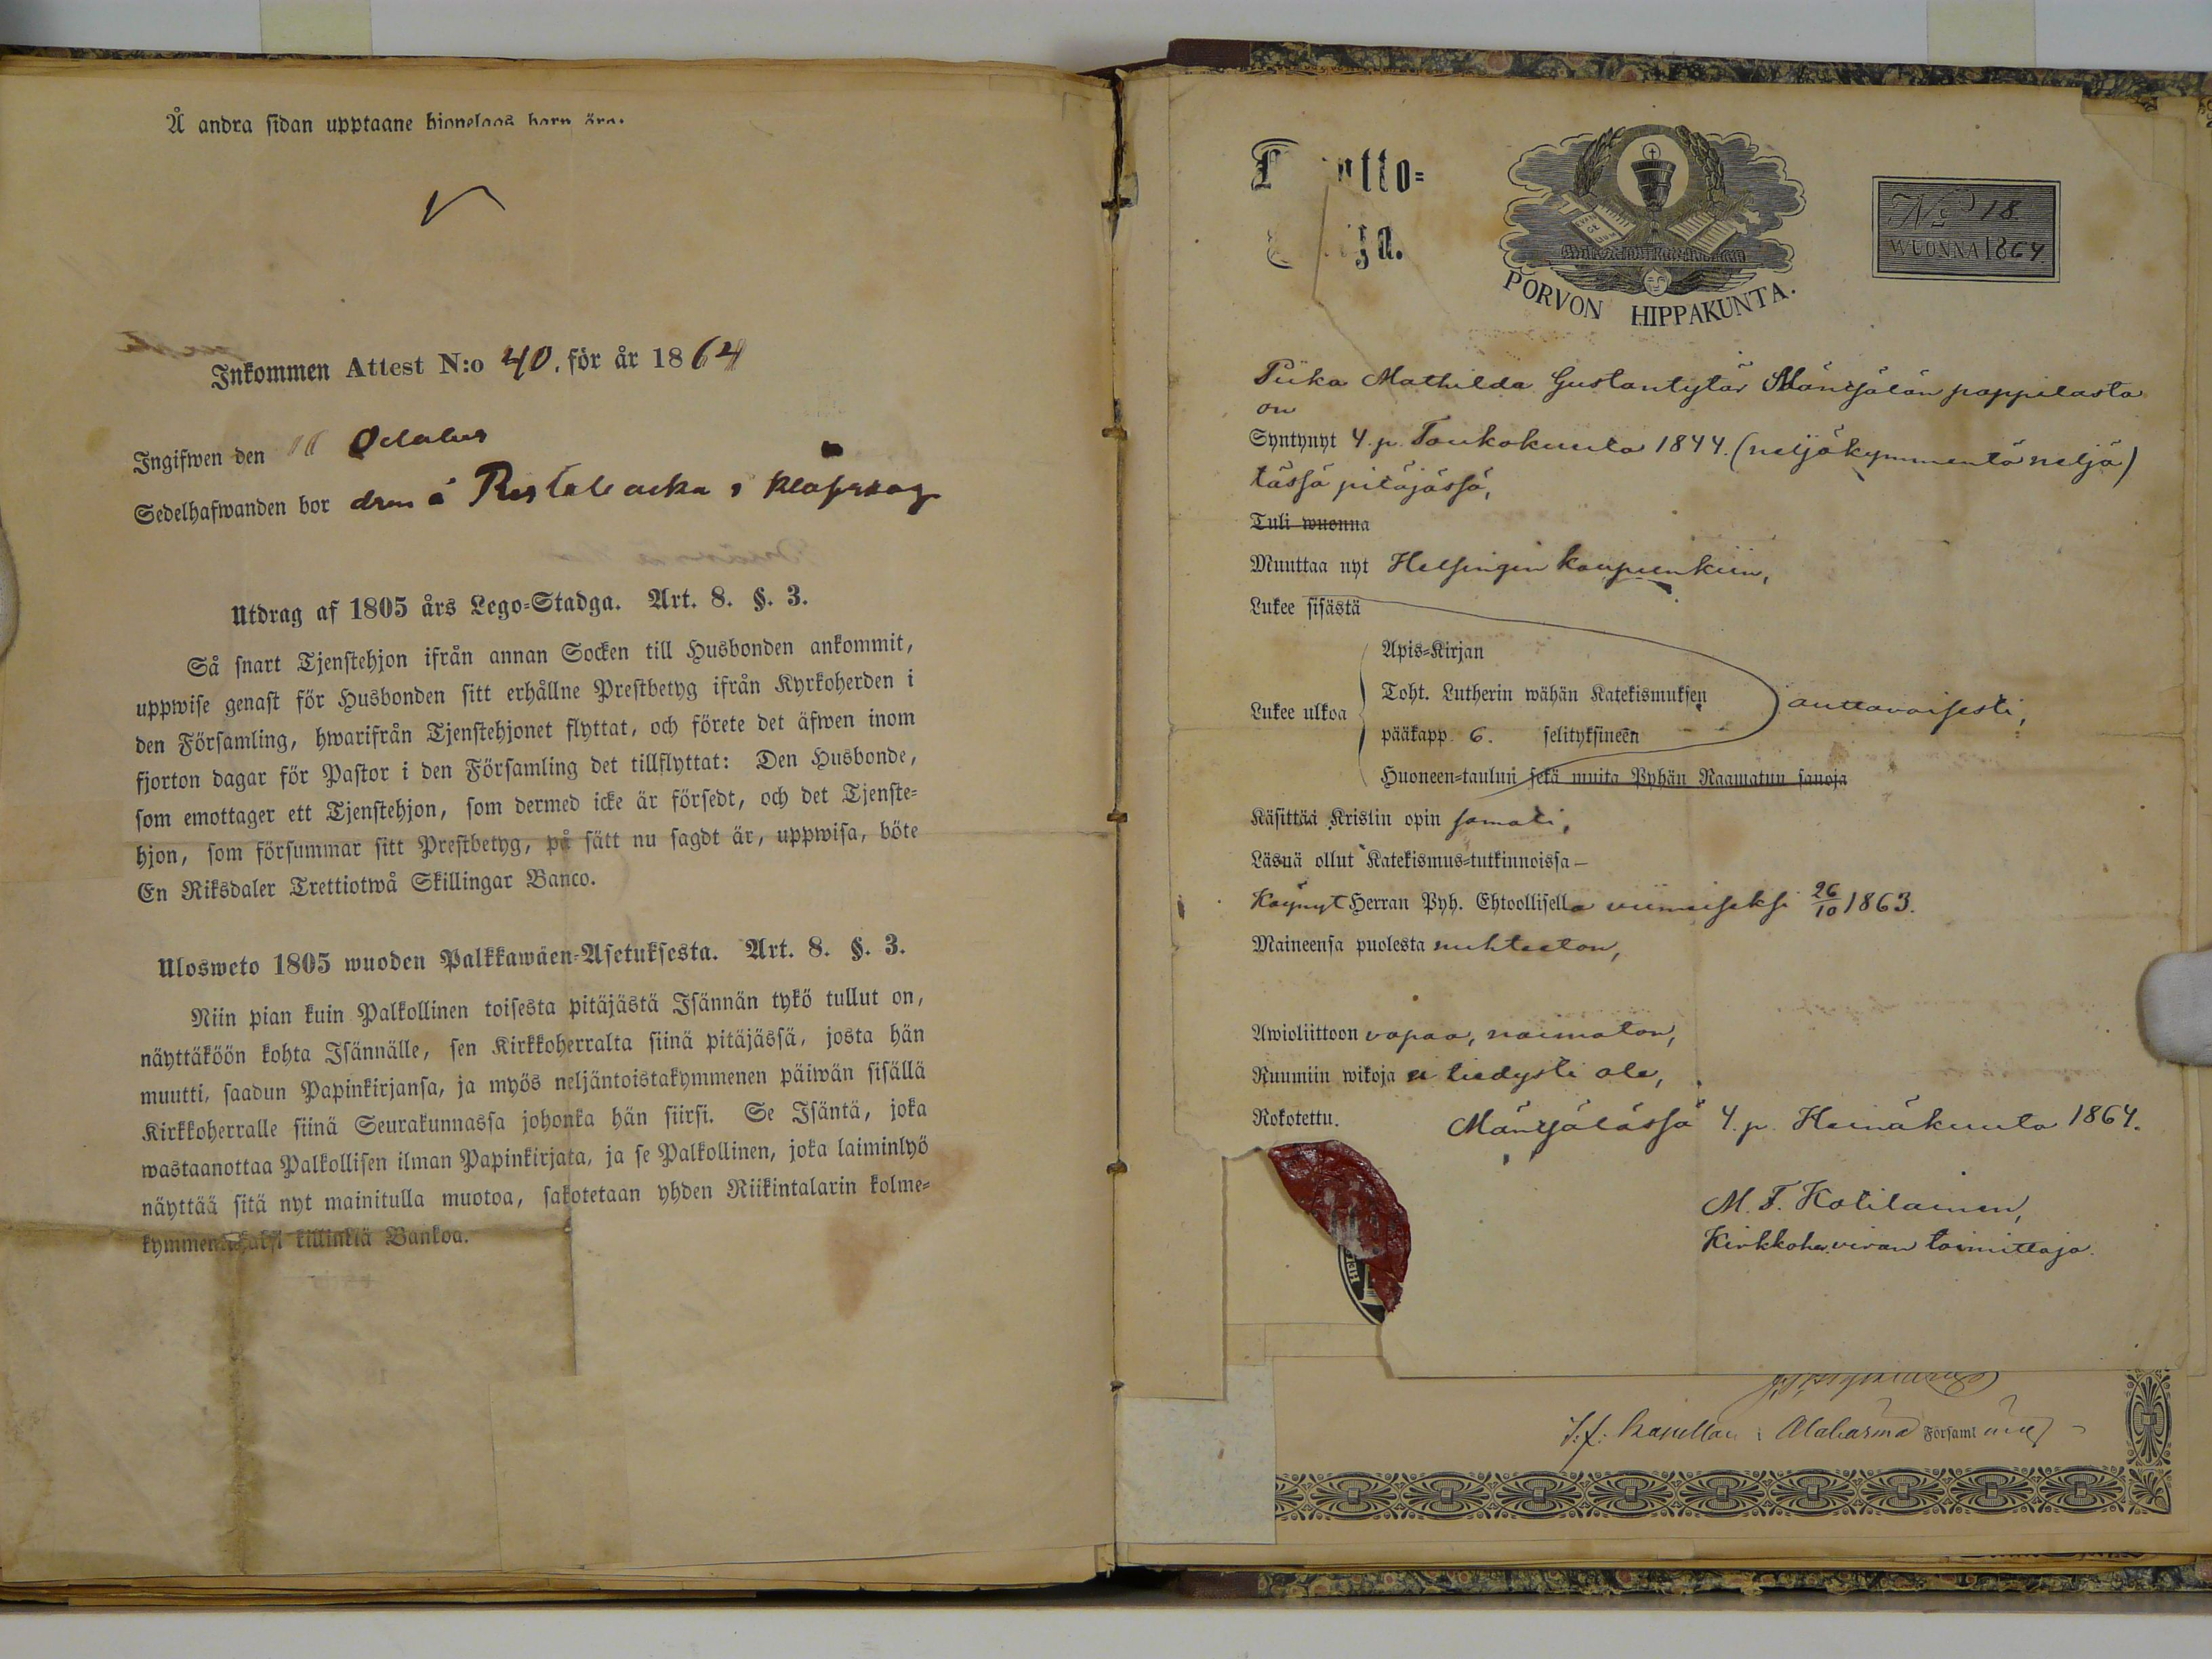 Å andra sidan upptagne hjonelags barn äro:
Inkommen Attest N:o 40. för år 1864
Ingifwen den Octobus
Sedelhafwanden bor å i
Utdrag af 1805 års Lego=Stadga. Art. 8. §. 3.
Så snart Tjenstehjon ifrån annan Socken till Husbonden ankommit,
uppwise genast för Husbonden sitt erhållne Prestbetyg ifrån Kyrkoherden i
den Församling, hwarifrån Tjenstehjonet flyttat, och förete det äfwen inom
fjorton dagar för Pastor i den Församling det tillflyttat: Den Husbonde,
som emottager ett Tjenstehjon, som dermed icke är försedt, och det Tjenste=
hjon, som försummar sitt Prestbetyg, på sätt nu sagdt är, uppwisa, böte
En Riksdaler Trettiotwå Skillingar Banco.
Ulosweto 1805 wuoden Palkkawäen=Asetuksesta. Art. 8. §. 3.
Niin pian kuin Palkollinen toisesta pitäjästä Isännän tykö tullut on,
näyttäköön kohta Isännälle, sen Kirkkoherralta siinä pitäjässä, josta hän
muutti, saadun Papinkirjansa, ja myös neljäntoistakymmenen päiwän sisällä
Kirkkoherralle siinä Seurakunnassa johonka hän siirsi. Se Isäntä, joka
wastaanottaa Palkollisen ilman Papinkirjata, ja se Palkollinen, joka laiminlyö
näyttää sitä nyt mainitulla muotoa, sakotetaan yhden Riikintalarin kolme=
kymmentäkaksi killinkiä Bankoa.
utto=
ja.
PORVON HIPPAKUNTA.
No 18.
WUONNA 1864.
Piika Mathilda Gustantytär Mäntsälän pappilasta
on
Syntynyt 4. p. Toukokuuta 1844. (neljäkymmentä neljä)
tässä pitäjässä,
Tuli wuonna
Muuttaa nyt Helsingin kaupunkiin,
Lukee sisästä
Apis=Kirjan
Toht. Lutherin wähän Katekismuksen
Lukee ulkoa auttavaisesti,
pääkapp. 6. selityksineen
Huoneen=taulun sekä muita Pyhän Raamatun sanoja
Käsittää Kristin opin samati,
Läsnä ollut Katekismus=tutkinnoissa —
Käynyt Herran Pyh. Ehtoollisella viimeiseksi 26/10 1863.
Maineensa puolesta nuhteeton,
Awioliittoon vapaa, naimaton,
Ruumiin wikoja ei tiedysti ole,
Rokotettu.
Mäntsälässä 4. p. Heinäkuuta 1864.
M. F. Kotilainen,
Kirkkoher. viran toimittaja.
HEL
T. f. Kapellan i Alahärmä Församling